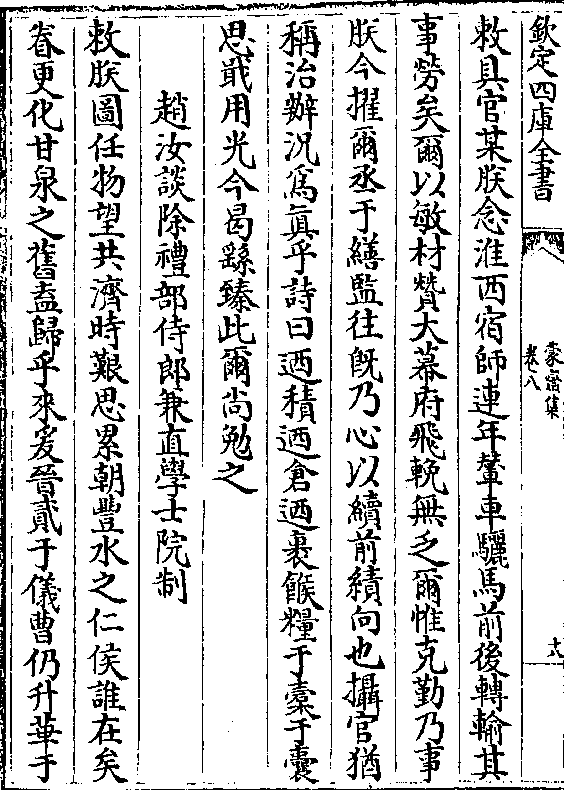 欽定四庫全書
蒙齋集
卷八
十八
敕具官某朕念淮西宿師連年輦車驪馬前後轉輸其
事勞矣爾以敏材贊大幕府飛輓無乏爾惟克勤乃事
朕今擢爾丞于繕監往既乃心以續前績向也攝官猶
稱治辦況爲真乎詩曰迺積迺倉迺裹餱糧于橐于囊
思戢用光今曷繇臻此爾尚勉之
趙汝談除禮部侍郎兼直學士院制
敕朕圖任物望共濟時艱思累朝豐水之仁侯誰在矣
眷更化甘泉之舊盍歸乎來爰晉貳于儀曹仍升華于